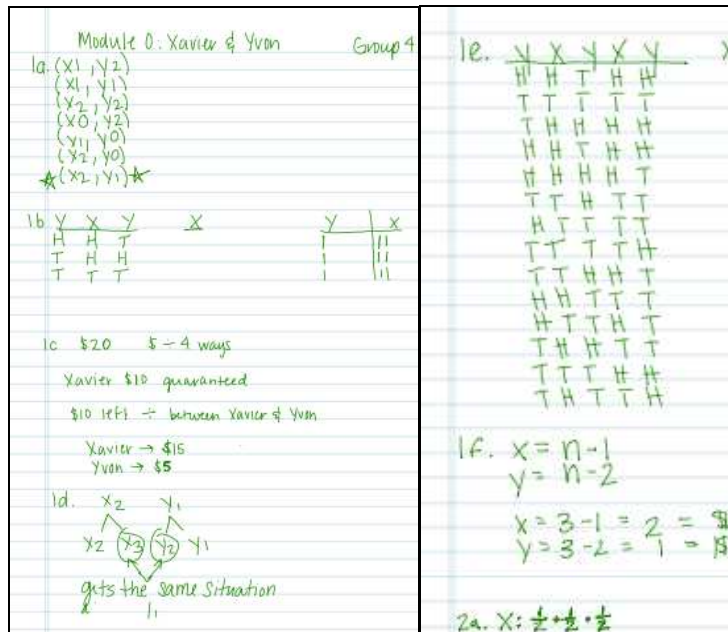 Module 0: Xavier & Yvon Group 4
1a. (X1, Y2)
(X1, Y1)
(X2, Y2)
(X0, Y2)
(Y1, Y0)
(X2, Y0)
☆(X2, Y1)☆
1b Y X Y X Y X
H H T | ||
T H H | ||
T T T | |||
1c $20 $ ÷ 4 ways
Xavier $10 guaranteed
$10 left ÷ between Xavier & Yvon
Xavier → $15
Yvon → $5
1d. X2 Y1
X2 X3 Y2 Y1
gets the same situation
1e. Y X Y X Y
H H T H H
T T T T T
T H H H H
H H T H H
H H H H T
T T H T T
H T T T T
T T T T H
T T H H T
H H T T T
H T T H T
T H H T T
T T T H H
T H T T H
1f. X = n-1
Y = n-2
X = 3-1 = 2 =
Y = 3-2 = 1 =
2a. X: ½ · ½ · ½